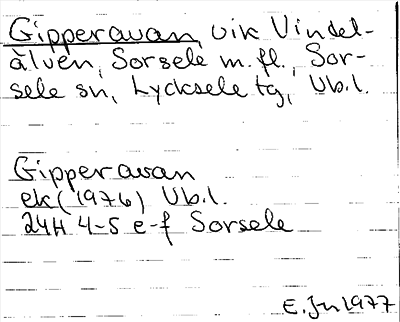 Gipperavan, vik Vindel-
älven, Sorsele m.fl., Sor-
sele sn, Lycksele tg, Vb.l.
Gipperavan
ek(1976) Vb.l.
24H 4-5 e-f Sorsele
E. Jn 1977